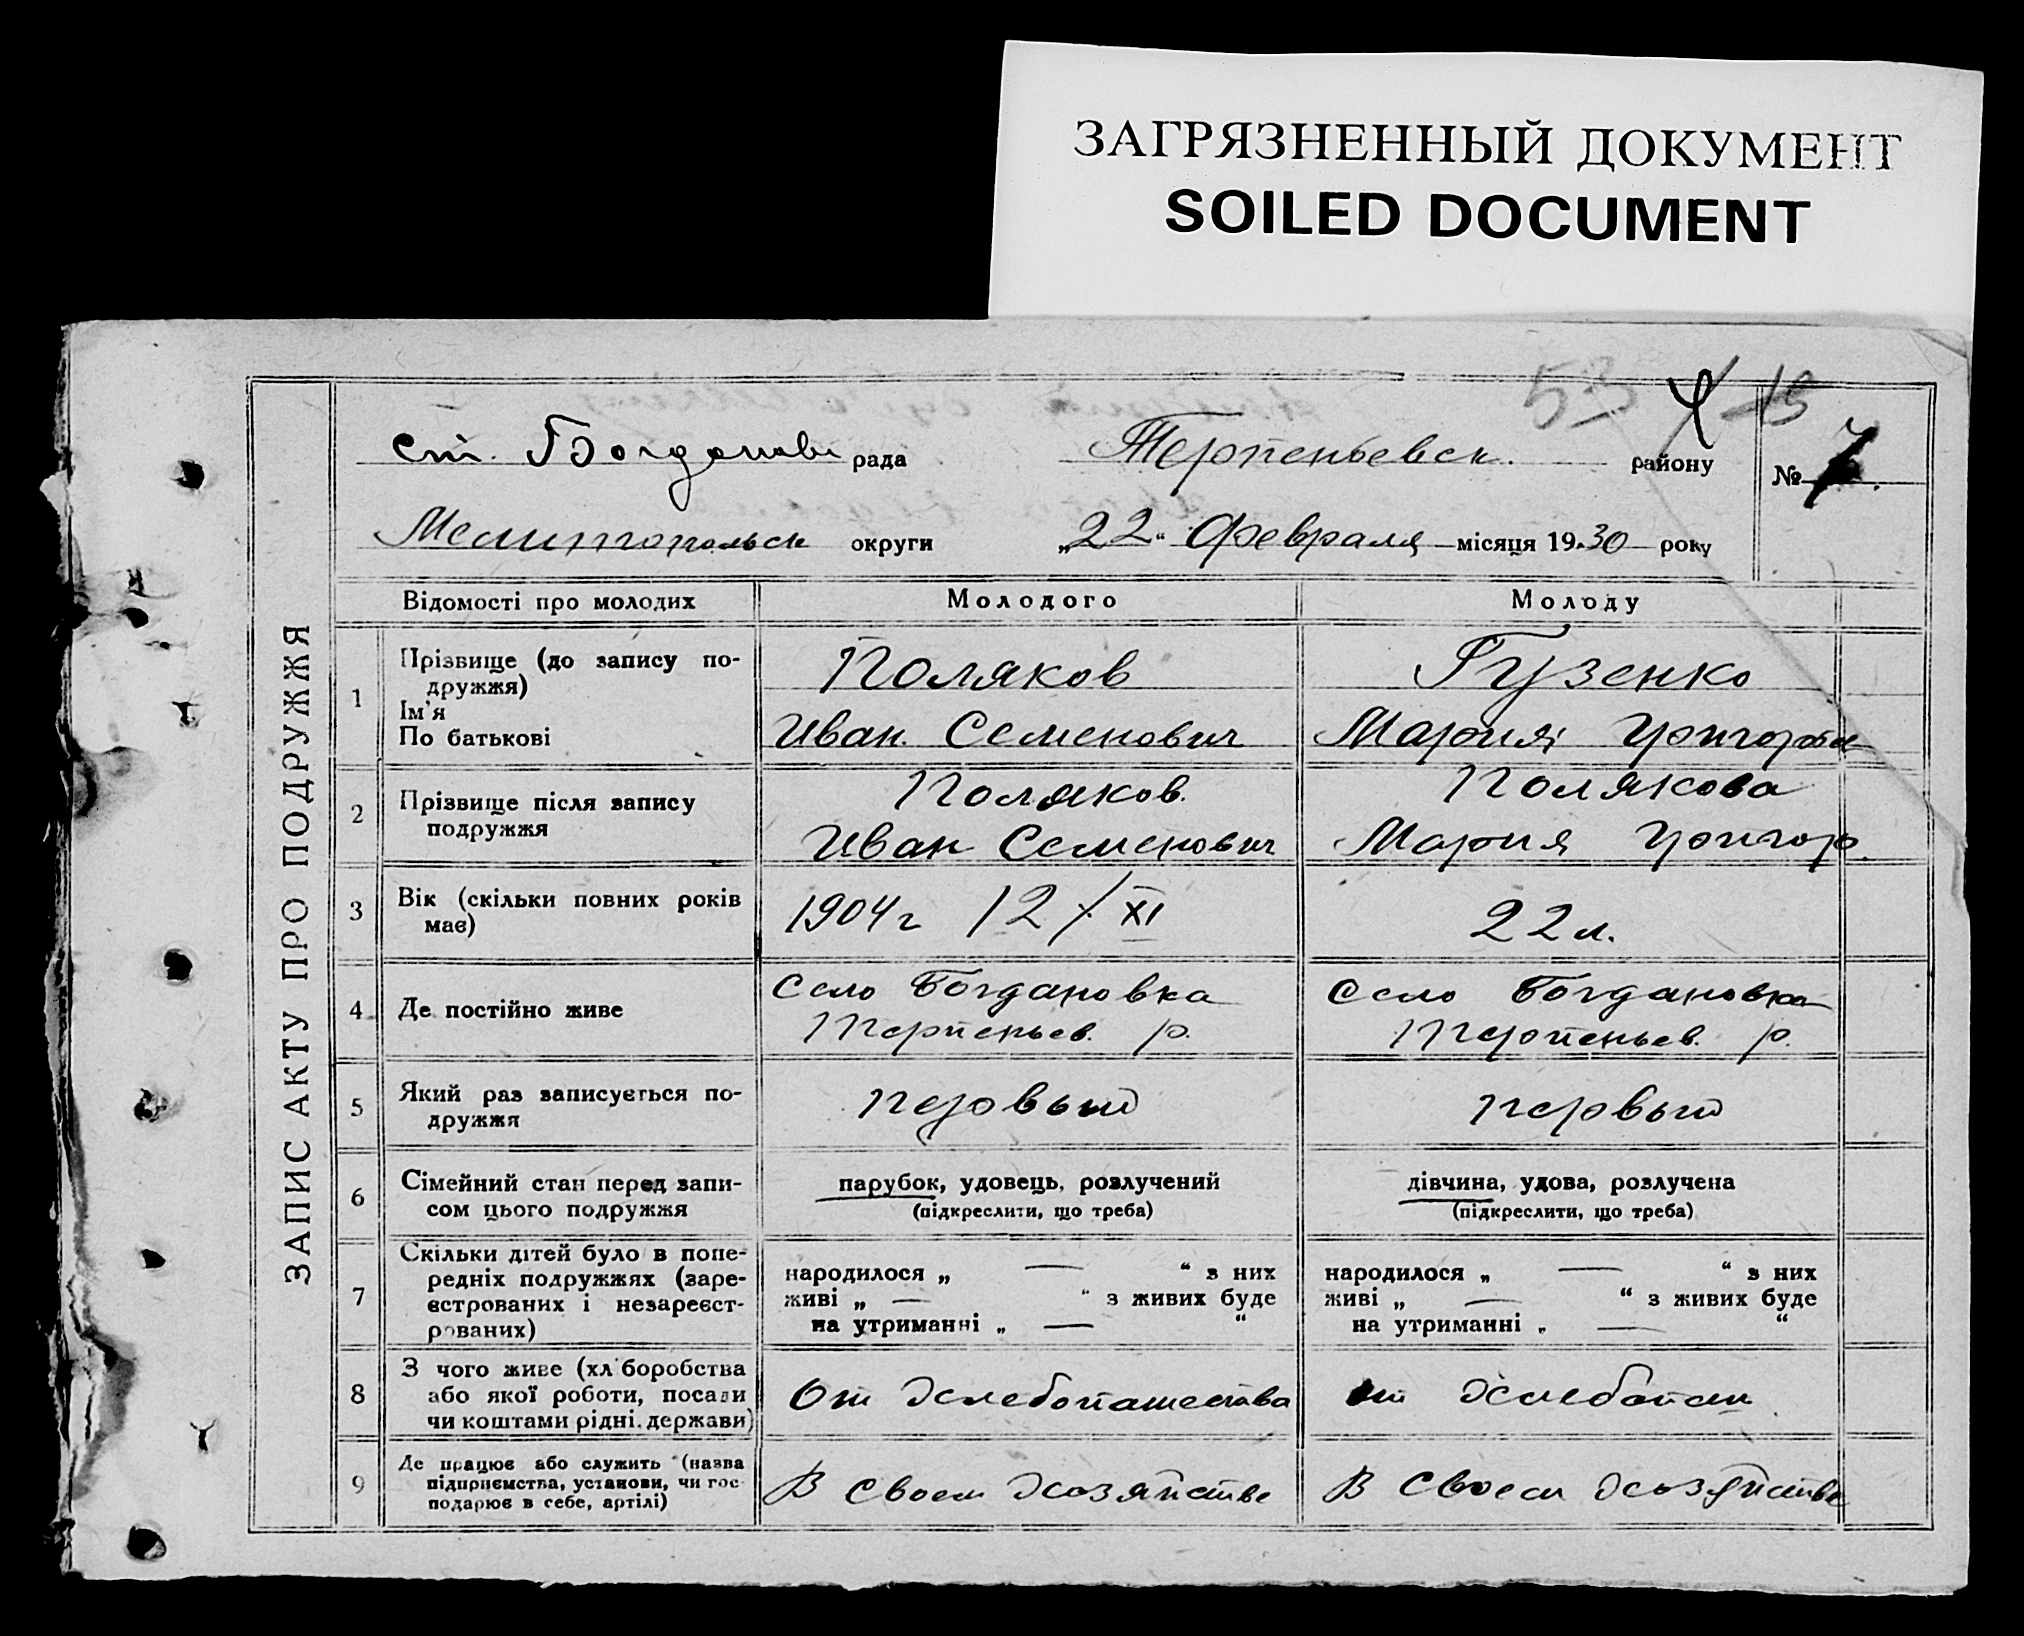 ЗАГРЯЗНЕННЫЙ ДОКУМЕНТ
SOILED DOCUMENT
53 13
ЗАПИС АКТУ ПРО ПОДРУЖЖЯ
ст. Богданови рада Терпеньевск. району № 7.
Мелитопольск округи „22“ Февраля місяця 1930 року
Відомості про молодих Молодого Молоду
1 Прізвище (до запису по-
дружжя)
Ім'я
По батькові
Поляков
Иван Семенович
Гузенко
Мария Григорьев
2 Прізвище після запису
подружжя
Поляков.
Иван Семенович
Полякова
Мария Григор.
3 Вік (скільки повних років
має)
1904 г 12/XI
22 л.
4 Де постійно живе
Село Богдановка
Терпеньев. р.
Село Богдановка
Терпеньев. р.
5 Який раз записується по-
дружжя
первый
первый
6 Сімейний стан перед запи-
сом цього подружжя
парубок, удовець, розлучений
(підкреслити, що треба)
дівчина, удова, розлучена
(підкреслити, що треба)
7 Скільки дітей було в попе-
редніх подружжях (заре-
єстрованих і незареєст-
рованих)
народилося „ — “ з них
живі „ — “ з живих буде
на утриманні „ — “
народилося „ — “ з них
живі „ — “ з живих буде
на утриманні „ — “
8 З чого живе (хліборобства
або якої роботи, посади
чи коштами рідні, держави)
От хлебопашества
от хлебопаш
9 Де працює або служить (назва
підприємства, установи, чи гос-
подарює в себе, артілі)
В своем хозяйстве
В своем хозяйстве